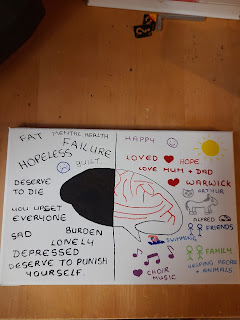 FAT MENTAL HEALTH
FAILURE
HOPELESS
GUILT
DESERVE
TO DIE
YOU UPSET
EVERYONE
SAD
BURDEN
LONELY
DEPRESSED
DESERVE TO PUNISH
YOURSELF
HAPPY
LOVED HOPE
LOVE MUM + DAD
WARWICK
ARTHUR
ALFRED
FRIENDS
SWIMMING
FAMILY
CHOIR
MUSIC
HELPING PEOPLE
+ ANIMALS